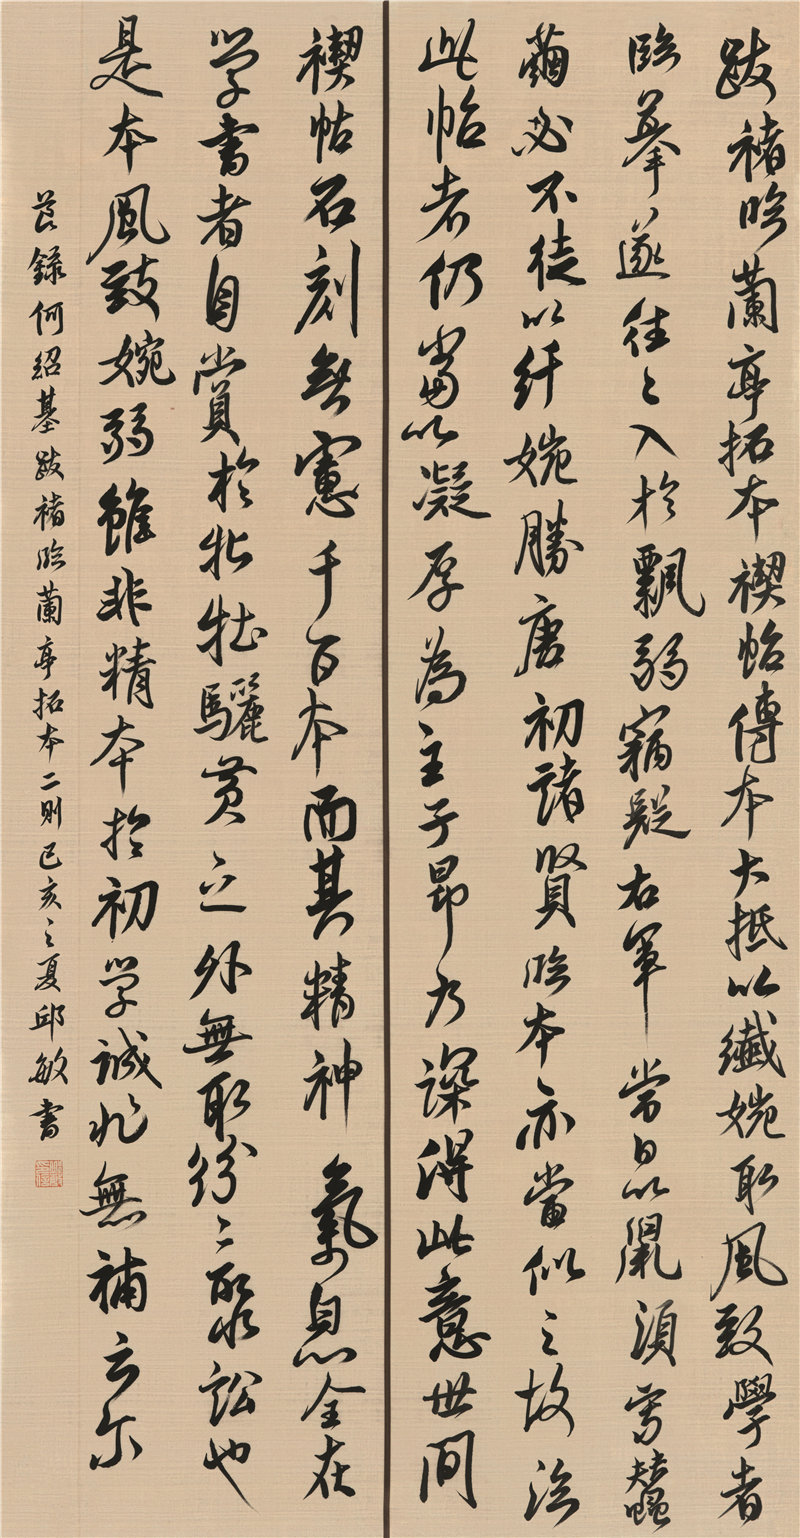 跋褚临蘭亭拓本禊帖傳本大抵以纖婉取風致學者
臨摹遂往々入於飄弱竊疑右軍當日以鼠須寫蠶
繭必不徒以纤婉勝唐初諸賢临本亦當似之故法
此帖者仍當以凝厚為主子昂乃深得此意世间
禊帖石刻無慮千百本而其精神氣息全在
学書者自赏於牝牡驪黄之外無取纷々聚訟也
是本風致婉弱雖非精本於初学誠非無補云尔
莨録何紹基跋褚临蘭亭拓本二則己亥之夏邱敏書